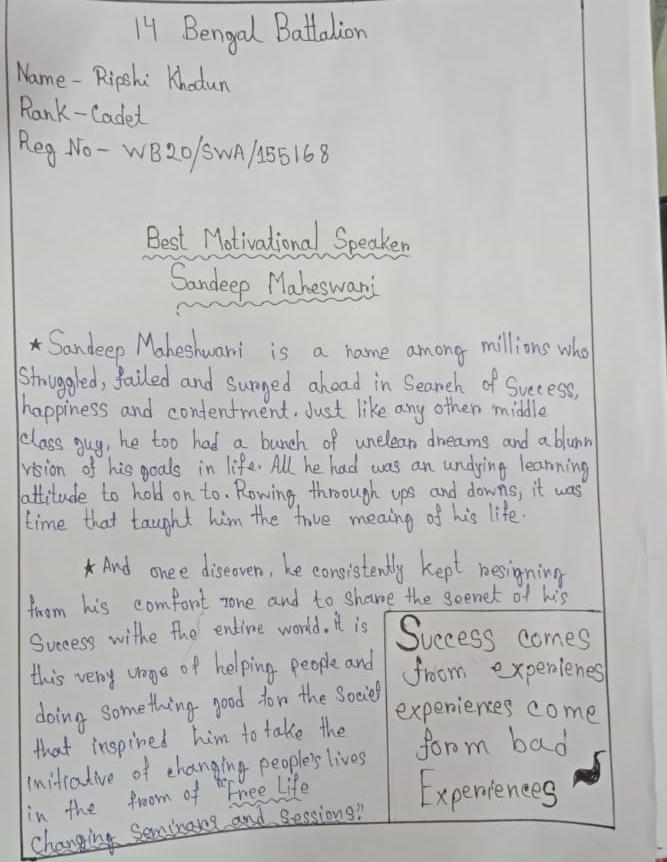 14 Bengal Battalion
Name - Ripshi Khatun
Rank - Cadet
Reg No - WB20/SWA/155168
Best Motivational Speaker
Sandeep Maheswari
★ Sandeep Maheshwari is a name among millions who
Struggled, failed and surged ahead in Search of Success,
happiness and contentment. Just like any other middle
class guy, he too had a bunch of unclear dreams and a blurr
vision of his goals in life. All he had was an undying learning
attitude to hold on to. Rowing through ups and downs, it was
time that taught him the true meaing of his life.
★ And once discover, he consistently kept resigning
from his comfort zone and to share the secret of his
Success withe the entire world. it is
this very urge of helping people and
doing something good for the Societ
that inspired him to take the
initiative of changing people's lives
in the from of "Free Life
Changing Seminars and Sessions."
Success comes
from experienes
experiences come
form bad
Experiences